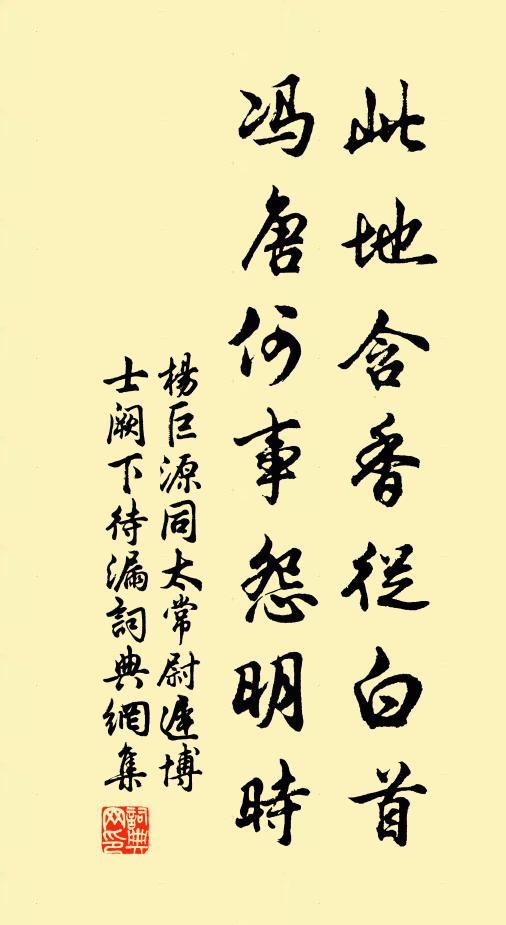 此地含香從白首
冯唐何事怨明時
楊巨源同太常尉遲博
士闕下待漏詞典網集
詞典
网印